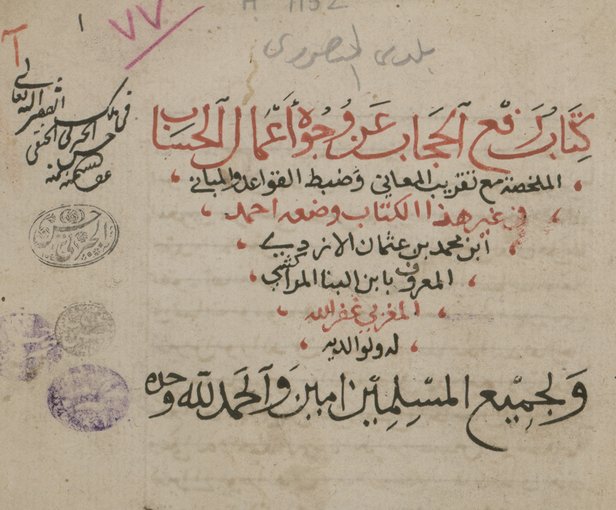 ١
٧٧
بلدى المنصورى
كتاب رفع الحجاب عن وجوه أعمال الحساب
الملخصة مع تقريب المعاني وضبط القواعد والمباني
في غير هذا الكتاب وضعه احمد
ابن محمد بن عثمان الازديي
المعروف بابن البنا المراكشي
المغربي غفر الله
له ولوالديه
ولجميع المسلمين امين والحمد لله وحده
في ملك
الفقير الى الله تعالى
حسن الجبرتي الحنفي
حسن الجبرتي